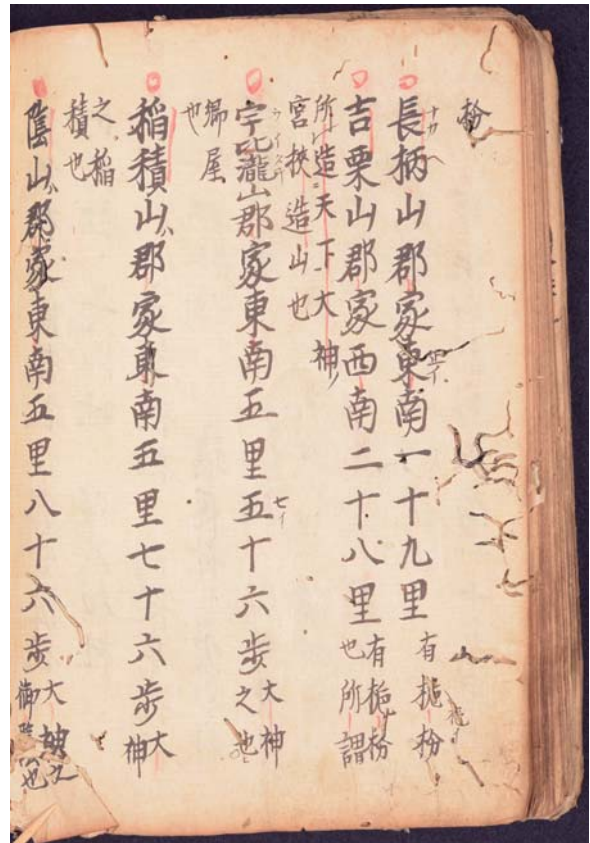 枌
長柄山郡家東南一十九里有檤枌
吉栗山郡家西南二十八里有檤枌也所謂
所造天下大神
宮挾造山也
宇比瀧山郡家東南五里五十六歩大神之
郷屋
也
稲積山郡家東南五里七十六歩大神
之稲
積也
陰山郡家東南五里八十六歩大神之御也